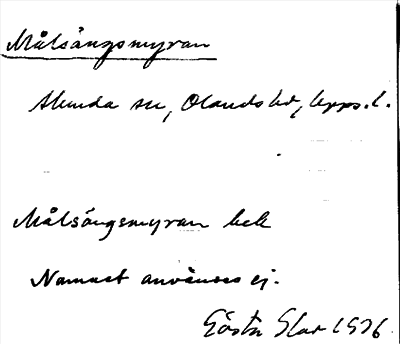 Målsångsmyran
Alunda sn, Olands hd, Upps. l.
Målsångsmyran bek
Namnet användes ej.
Gösta Slar 1936